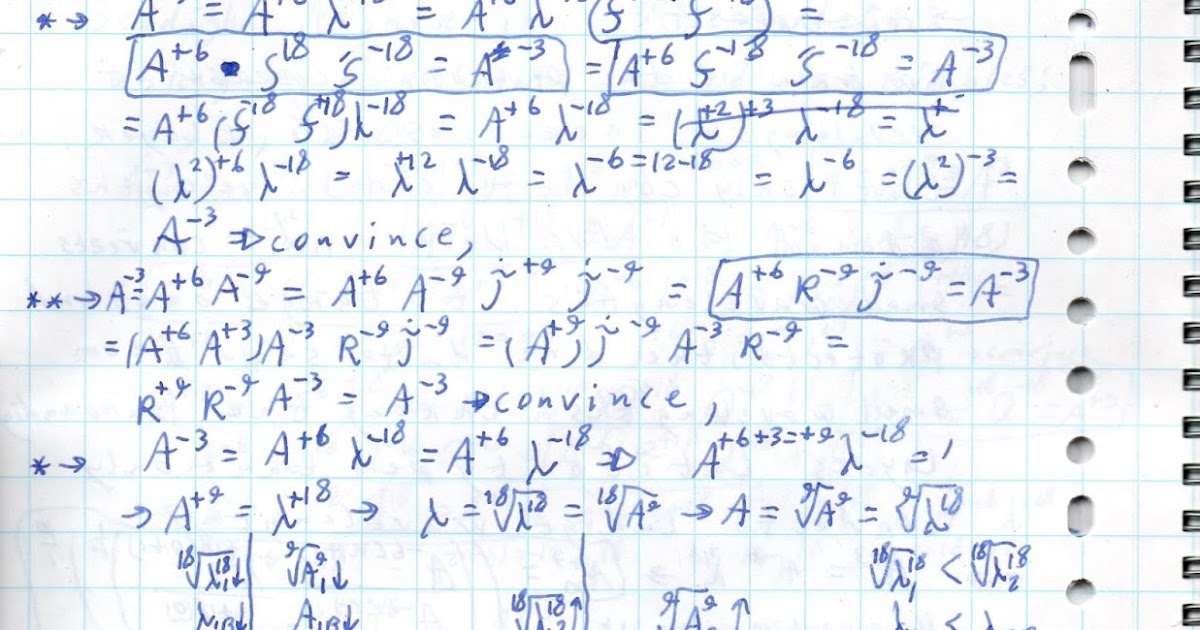 * →
A⁺⁶ • ϛ¹⁸ ϛ⁻¹⁸ = A⁻³ = A⁺⁶ ϛ⁻¹⁸ ϛ⁻¹⁸ = A⁻³
= A⁺⁶ (ϛ⁻¹⁸ ϛ⁺¹⁸) λ⁻¹⁸ = A⁺⁶ λ⁻¹⁸ = (λ⁺²)⁺³ λ⁻¹⁸ = λ⁺⁻
(λ²)⁺⁶ λ⁻¹⁸ = λ⁺¹² λ⁻¹⁸ = λ⁻⁶⁼¹²⁻¹⁸ = λ⁻⁶ = (λ²)⁻³ =
A⁻³ ⇒ convince,
** → A⁻³ = A⁺⁶ A⁻⁹ = A⁺⁶ A⁻⁹ j⁺⁹ j⁻⁹ = A⁺⁶ R⁻⁹ j⁻⁹ = A⁻³
= (A⁺⁶ A⁺³) A⁻³ R⁻⁹ j⁻⁹ = (A⁺⁹) j⁻⁹ A⁻³ R⁻⁹ =
R⁺⁹ R⁻⁹ A⁻³ = A⁻³ → convince,
* → A⁻³ = A⁺⁶ λ⁻¹⁸ = A⁺⁶ λ⁻¹⁸ ⇒ A⁺⁶⁺³⁼⁺⁹ λ⁻¹⁸ = ′
→ A⁺⁹ = λ⁺¹⁸ → λ = ¹⁸√λ¹⁸ = ¹⁸√A⁹ → A = ⁹√A⁹ = ⁹√λ¹⁸
¹⁸√λ₁¹⁸↓ ⁹√A₁⁹↓ ¹⁸√λ₁¹⁸ < ¹⁸√λ₂¹⁸